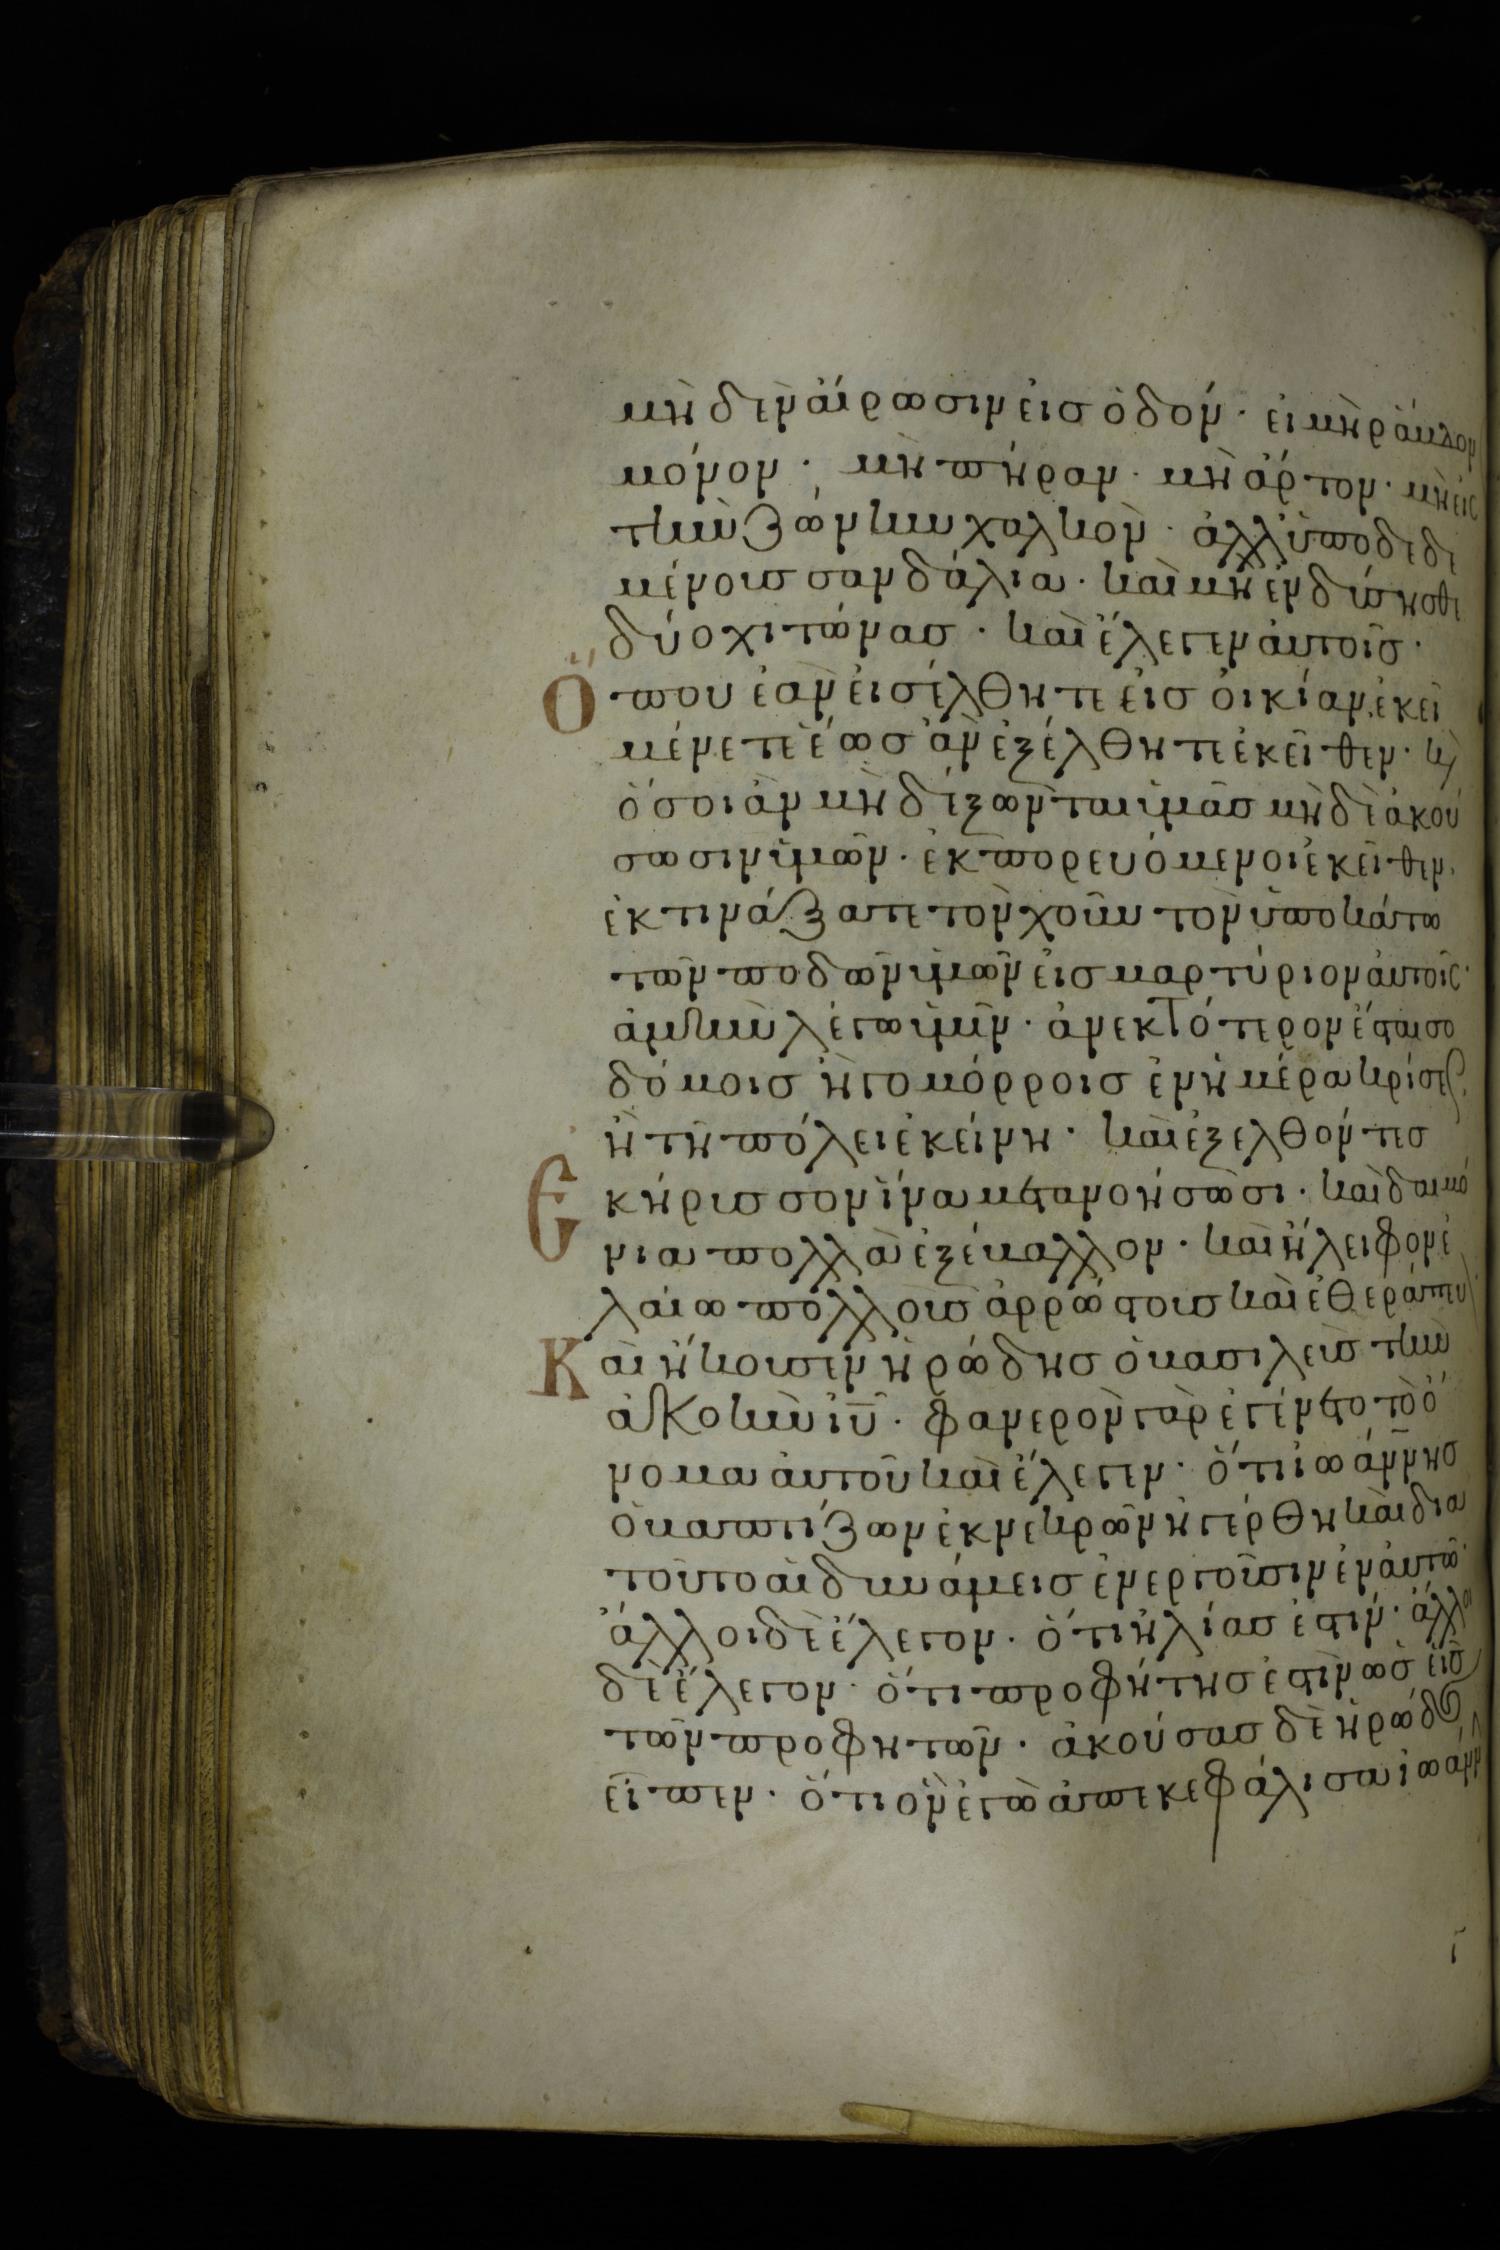 μηδὲν αἴρωσιν εἰς ὁδόν· εἰ μὴ ράβδον
μόνον· μὴ πήραν· μὴ ἄρτον· μὴ εἰς
τὴν ζώνην χαλκὸν· ἀλλ' ὑποδεδε
μένους σανδάλια· καὶ μὴ ἐνδύσησθε
δύο χιτῶνας· καὶ ἔλεγεν αὐτοῖς·
Ὅπου ἐὰν εἰσέλθητε εἰς οἰκίαν, ἐκεῖ
μένετε ἕως ἂν ἐξέλθητε ἐκεῖθεν· κ
ὅσοι ἂν μὴ δέξωνται ὑμᾶς μηδὲ ἀκού
σωσιν ὑμῶν· ἐκπορευόμενοι ἐκεῖθεν·
ἐκτινάξατε τὸν χοῦν τὸν ὑποκάτω
τῶν ποδῶν ὑμῶν εἰς μαρτύριον αὐτοῖς·
ἀμὴν λέγω ὑμῖν· ἀνεκτότερον ἔσται σο
δόμοις ἢ γομόρροις ἐν ἡμέρα κρίσεως
ἢ τῆ πόλει ἐκείνη· καὶ ἐξελθόντες
Ἐκήρυσσον ἵνα μετανοήσωσι· καὶ δαιμό
νια πολλὰ ἐξέβαλλον· καὶ ἤλειφον ἐ
λαίω πολλοὺς ἀρρώστους καὶ ἐθεράπευ
Καὶ ἤκουσεν ἡρώδης ὁ βασιλεὺς τὴν
ἀκοὴν ἰυ· φανερὸν γὰρ ἐγένετο τὸ ὄ
νομα αὐτοῦ καὶ ἔλεγεν· ὅτι ἰωάννης
ὁ βαπτίζων ἐκ νεκρῶν ἠγέρθη καὶ δια
τοῦτο αἱ δυνάμεις ἐνεργοῦσιν ἐν αὐτῶ·
ἄλλοι δὲ ἔλεγον· ὅτι ἠλίας ἐστιν· ἄλλοι
δὲ ἔλεγον· ὅτι προφήτης ἐστὶν ὡς εἷς
τῶν προφητῶν· ἀκούσας δὲ ἡρώδης
εἶπεν· ὅτι ὃν ἐγὼ ἀπεκεφάλισα ἰωάνν